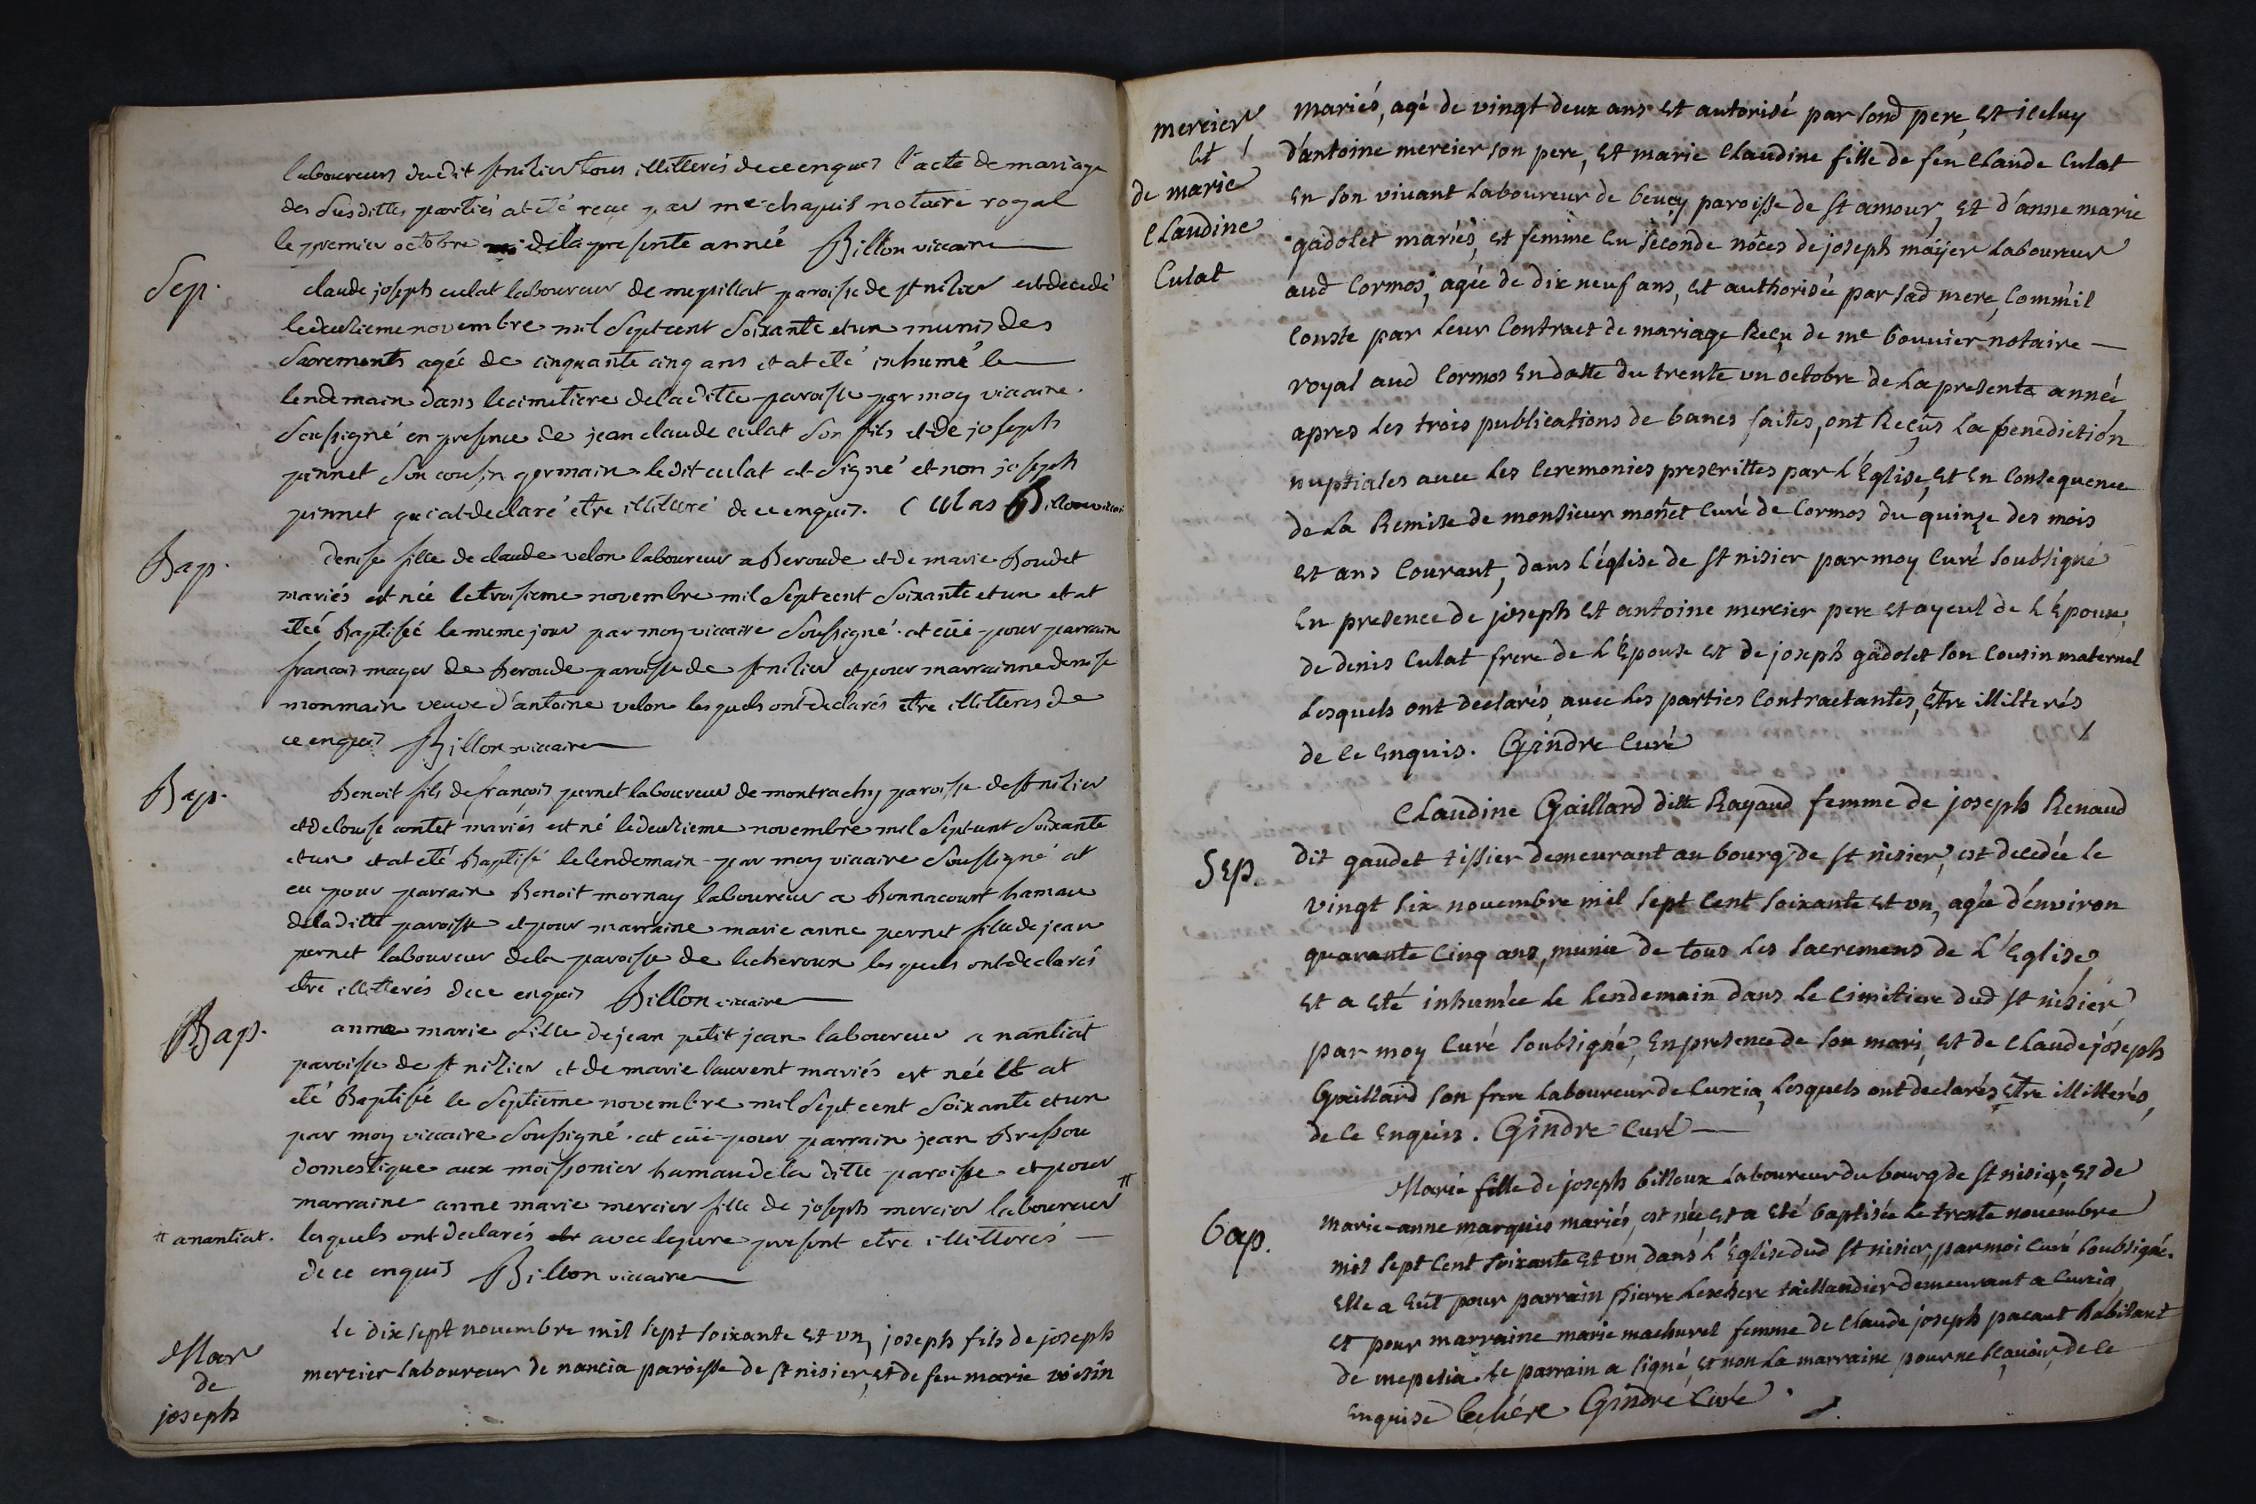 laboureurs dudit st nizier tous illitterés de ce enquis l'acte de mariage
des susdittes parties at eté reçu par me chapuis notaire royal
le premier octobre de la presente année Billon viccaire
Sep.
claude joseph culat laboureur de mepillat paroisse de st nizier est decedé
le deuxieme novembre mil sept cent soixante et un munis des
sacrements agée de cinquante cinq ans et at eté inhumé le
lendemain dans le cimetiere de la ditte paroisse par moy viccaire
soussigné en presence de jean claude culat son fils et de joseph
pinnet son cousin germain ledit culat at signé et non joseph
pinnet qui at declaré etre illitteré de ce enquis. Culas Billon viccaire
Bap.
denise fille de claude velon laboureur a Beroude et de marie Boudet
mariés est née le troisieme novembre mil sept cent soixante et un et at
eté Baptisée le meme jour par moy viccaire soussigné at eüe pour parrain
francois mayer de Beroude paroisse de st nizier et pour marrainne denise
monmain veuve d'antoine velon lesquels ont declarés etre illitteres de
ce enquis Billon viccaire
Bap.
Benoit fils de françois pernet laboureur de montrachy paroisse de st nizier
et de louise contet mariés est né le deuxieme novembre mil sept cent soixante
et un et at eté Baptisé le lendemain par moy viccaire soussigné at
eu pour parrain Benoit mornay laboureur a Bonnacourt hamau
de la ditte paroisse et pour marraine marie anne pernet fille de jean
pernet laboureur de la paroisse de lecheroux lesquels ont declarés
etre illitterés de ce enquis Billon viccaire
Bap.
anne marie fille de jean petit jean laboureur a nantiat
paroisse de st nizier et de marie laurent mariés est née et at
eté Baptisée le septieme novembre mil sept cent soixante et un
par moy viccaire soussigné at eüe pour parrain jean Bressou
domestique aux moissonier hamau de la ditte paroisse et pour
marraine anne marie mercier fille de joseph mercier laboureur #
# a nantiat.
lesquels ont declarés avec le pere present etre illitterés
de ce enquis Billon viccaire
Mar
de
joseph
le dix sept novembre mil sept soixante et un, joseph fils de joseph
mercier laboureur de nancia paroisse de st nisier, et de feu marie voisin
mercier
et
de marie
Claudine
Culat
mariés, agé de vingt deux ans et autorisé par sond pere, et iceluy
d'antoine mercier son pere, et marie Claudine fille de feu Claude Culat
en son vivant laboureur de beucy paroisse de st amour, et d'anne marie
gadolet mariés, et femme en seconde nôces de joseph mäyer laboureur
aud Cormos, agée de dix neuf ans, et authorisée par sad mere, Comm'il
Conste par leur Contract de mariage Reçu de me bouvier notaire
royal aud Cormos en datte du trente un octobre de la presente année
apres les trois publications de bancs faites, ont Reçus la benediction
nuptiales avec les Ceremonies prescrittes par l'Eglise, et en Consequence
de la Remise de monsieur monet Curé de Cormos du quinze des mois
et ans Courant, dans l'église de st nisier par moy Curé soubsigné
en presence de joseph et antoine mercier pere et ayeul de l'Époux,
de denis Culat frere de l'Epouse et de joseph gadolet son Cousin maternel
lesquels ont declarés avec les parties Contractantes, Être illiterés
de ce enquis. Gindre Curé
Sep.
Claudine Gaillard ditte Rayaud femme de joseph Renaud
dit gaudet tissier demeurant au bourg de st nisier, est decedée le
vingt six novembre mil sept Cent soixante et un, agée d'environ
quarante Cinq ans, munie de tous les sacremens de l'Eglise,
et a eté inhumée le lendemain dans le Cimetiere dud st nisier
par moy Curé soubsigné, en presence de son mari, et de Claude joseph
Gaillard son frere laboureur de Curcia, lesquels ont declarés, être illitterés,
de ce enquis. Gindre Curé
bap.
Marie fille de joseph billoux laboureur du bourg de st nisier, et de
marie-anne marquis mariés, est née et a eté baptisée le trente novembre
mil sept Cent soixante et un dans l'Église dud st nisier, par moi Curé soubsigné.
elle a eut pour parrain pierre lechere taillandier demeurant a Curcia
et pour marraine marie machuret femme de Claude joseph pacaut habitant
de mepelia. le parrain a signé, et non la marraine pour ne sçavoir, de ce
enquise lechére Gindre Curé